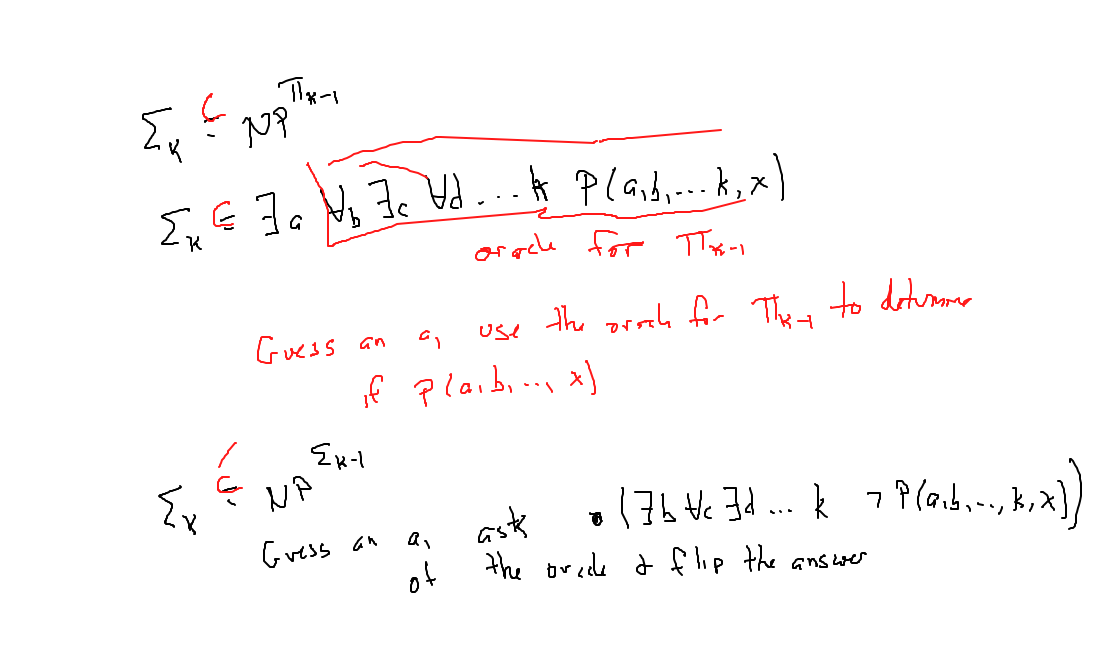 Σₖ ⊆ NP^Πₖ₋₁
Σₖ ⊆ ∃a ∀b ∃c ∀d ... k P(a,b,...k,x)
oracle for Πₖ₋₁
Guess an a, use the oracle for Πₖ₋₁ to determine
if P(a,b,..,x)
Σₖ ⊆ NP^Σₖ₋₁
Guess an a, ask (∃b ∀c ∃d ... k ¬P(a,b,..,k,x))
of the oracle & flip the answer